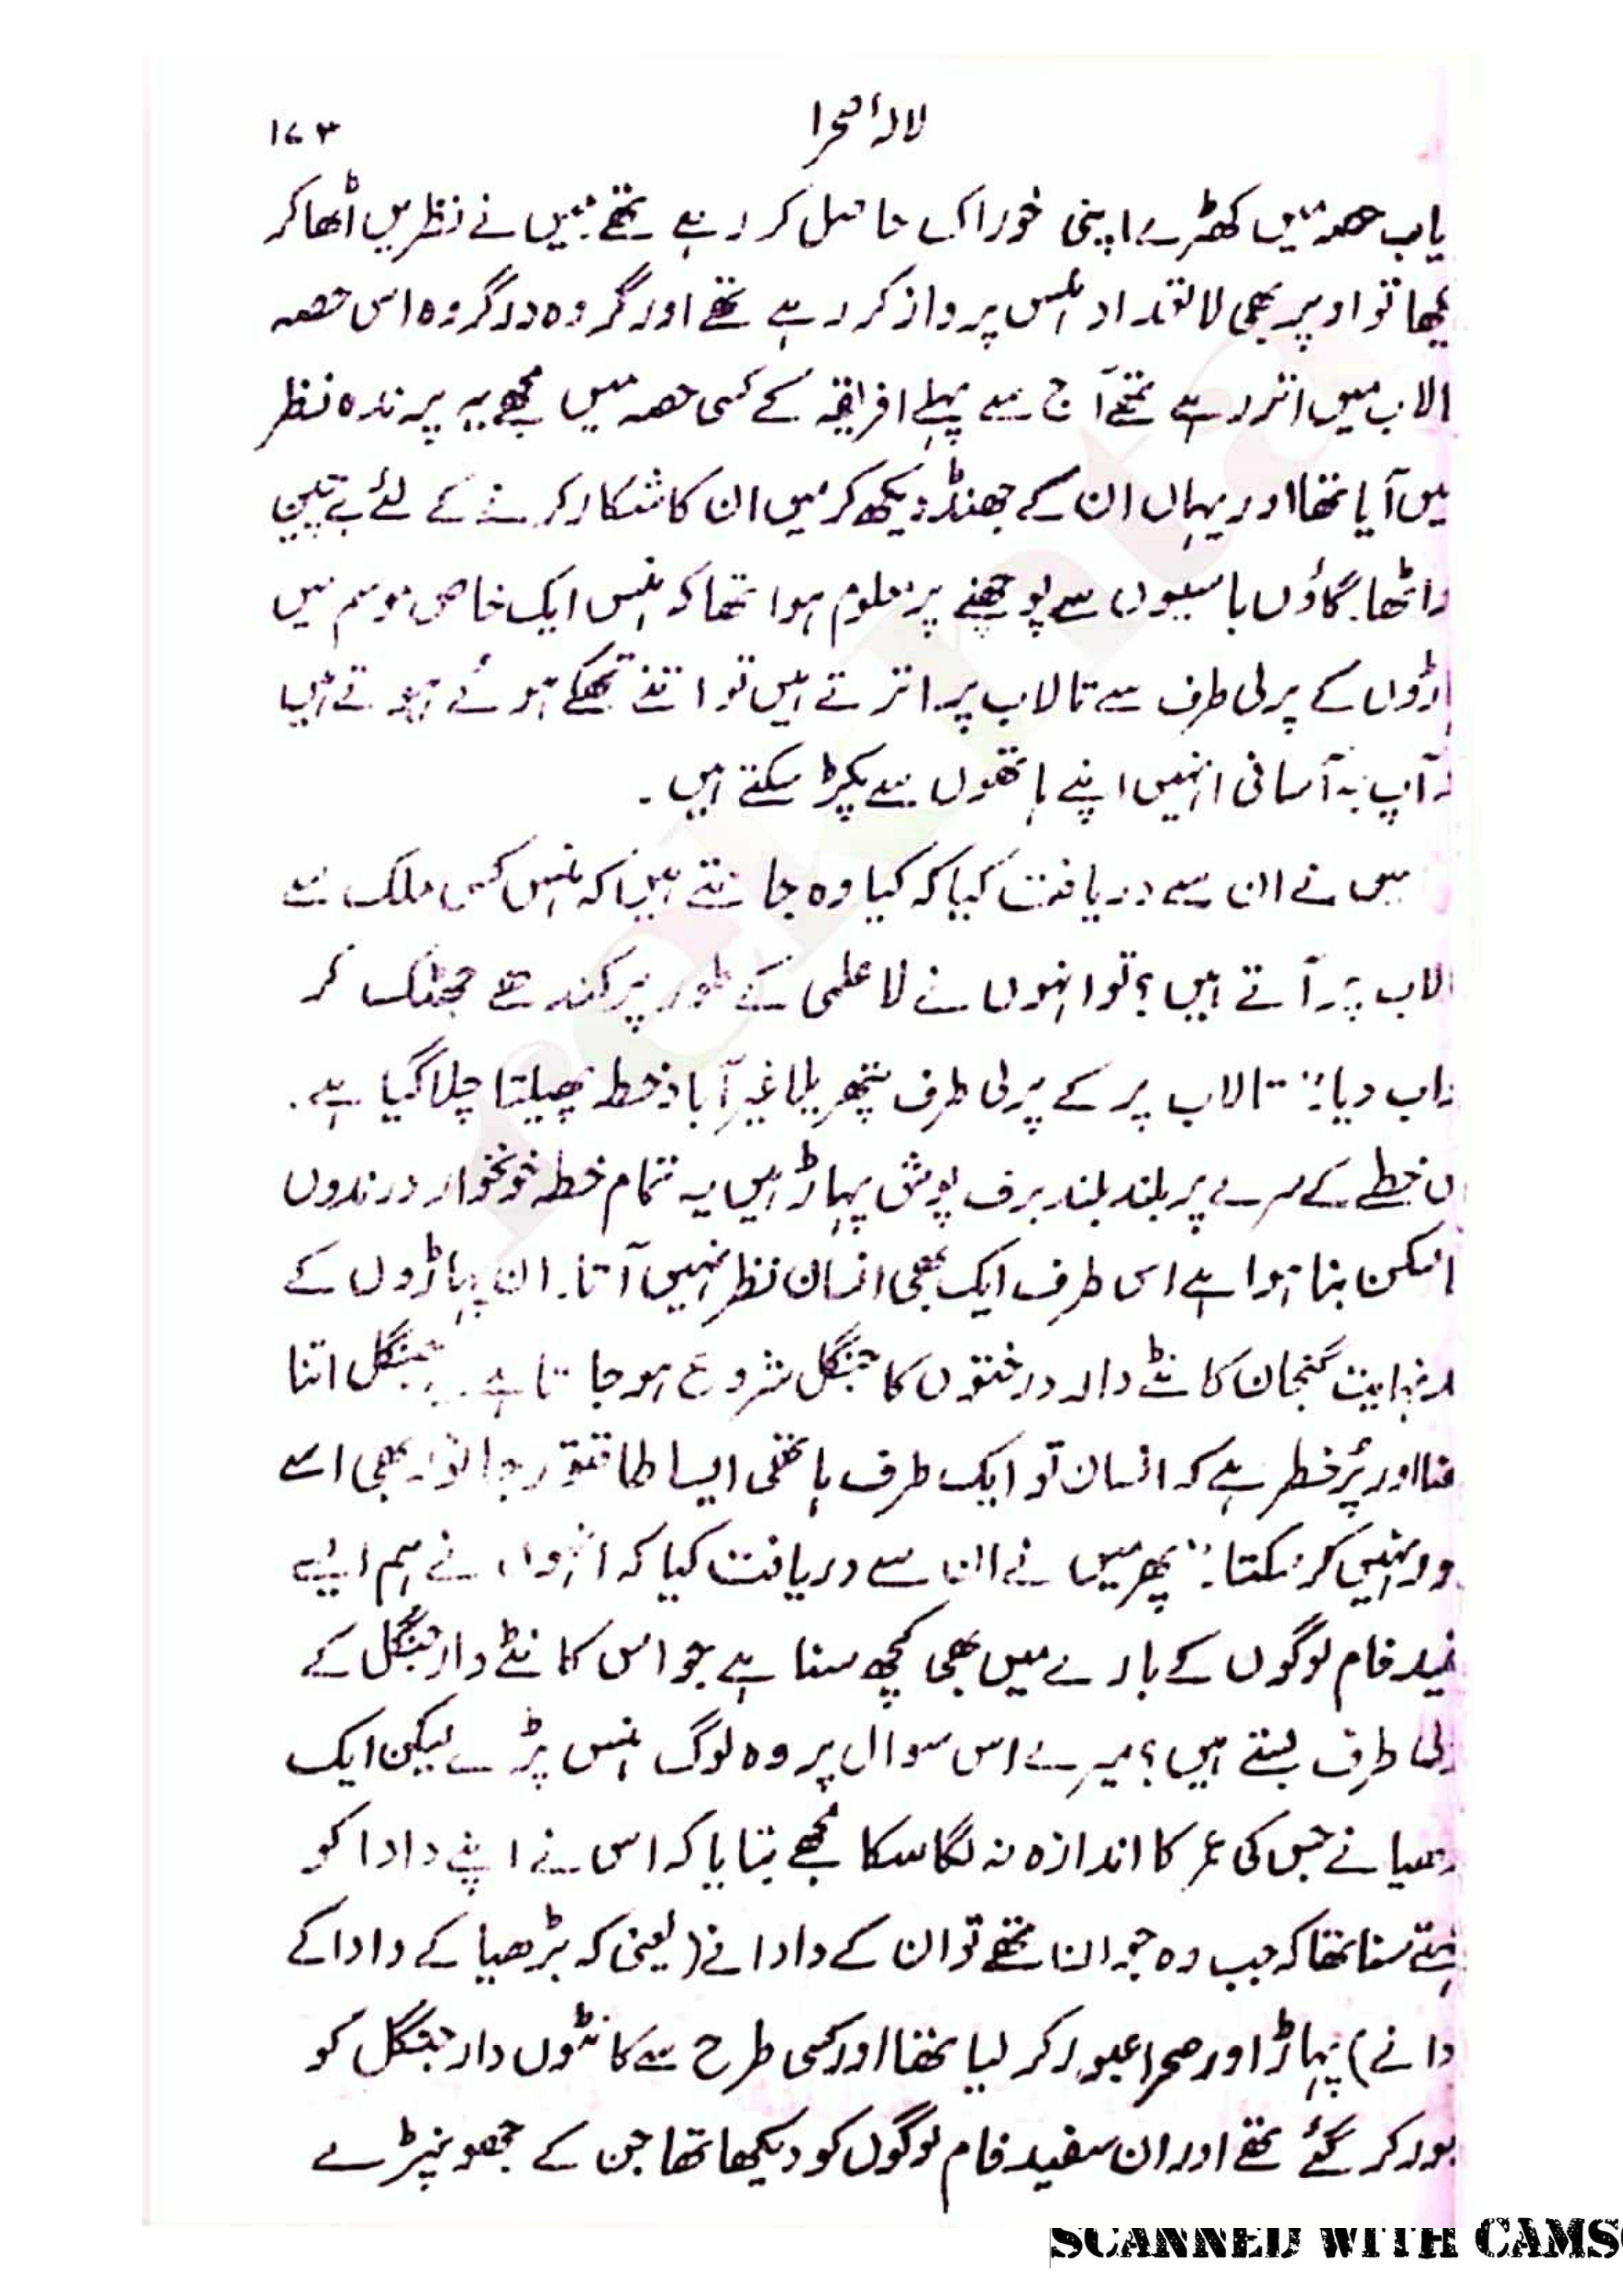 لالۂ صحرا ۱۷۳
یاب حصہ میں کھڑے اپنی خوراک حاصل کر رہے تھے میں نے نظریں اُٹھا کر
یکھا تو اوپر بھی لا تعداد ہنس پرواز کر رہے تھے اور گروہ در گروہ اس حصہ
الاب میں اتر رہے تھے آج سے پہلے افریقہ کے کسی حصہ میں مجھے یہ پرندہ نظر
یں آیا تھا اور یہاں ان کے جھنڈ دیکھ کر میں ان کا شکار کرنے کے لئے بے چین
واٹھا۔ گاؤں باسیوں سے پوچھنے پر معلوم ہوا تھا کہ ہنس ایک خاص موسم میں
اڑوں کے پرلی طرف سے تالاب پر اترتے ہیں تو اتنے تھکے ہوئے ہوتے ہیں
آپ بہ آسانی انہیں اپنے ہاتھوں سے پکڑ سکتے ہیں۔
میں نے ان سے دریافت کیا کہ کیا وہ جانتے ہیں کہ ہنس کس ملک سے
الاب پر آتے ہیں؟ تو انہوں نے لا علمی کے طور پر کندھے جھٹک کر
واب دیا:" تالاب پر کے پرلی طرف پتھریلا غیر آباد خطہ پھیلتا چلا گیا ہے۔
ں خطے کے سرے پر بلند بلند برف پوش پہاڑ ہیں یہ تمام خطہ خونخوار درندوں
امسکن بنا ہوا ہے اس طرف ایک بھی انسان نظر نہیں آتا۔ ان پہاڑوں کے
نہایت گنجان کانٹے دار درختوں کا جنگل شروع ہو جاتا ہے۔ یہ جنگل اتنا
ھنا اور پُر خطر ہے کہ انسان تو ایک طرف ہاتھی ایسا طاقتور جانور بھی اسے
ور نہیں کر سکتا۔" پھر میں نے ان سے دریافت کیا کہ انہوں نے ہم ایسے
فید فام لوگوں کے بارے میں بھی کچھ سنا ہے جو اس کانٹے دار جنگل کے
رلی طرف بستے ہیں؟ میرے اس سوال پر وہ لوگ ہنس پڑے لیکن ایک
ڑھیا نے جس کی عمر کا اندازہ نہ لگا سکا مجھے بتایا کہ اس نے اپنے دادا کو
ہتے سنا تھا کہ جب وہ جوان تھے تو ان کے دادا نے (یعنی کہ بڑھیا کے دادا کے
دانے) پہاڑ اور صحرا عبور کر لیا تھا اور کسی طرح سے کانٹوں دار جنگل کو
بور کر گئے تھے اور ان سفید فام لوگوں کو دیکھا تھا جن کے جھونپڑے
SCANNED WITH CAMS